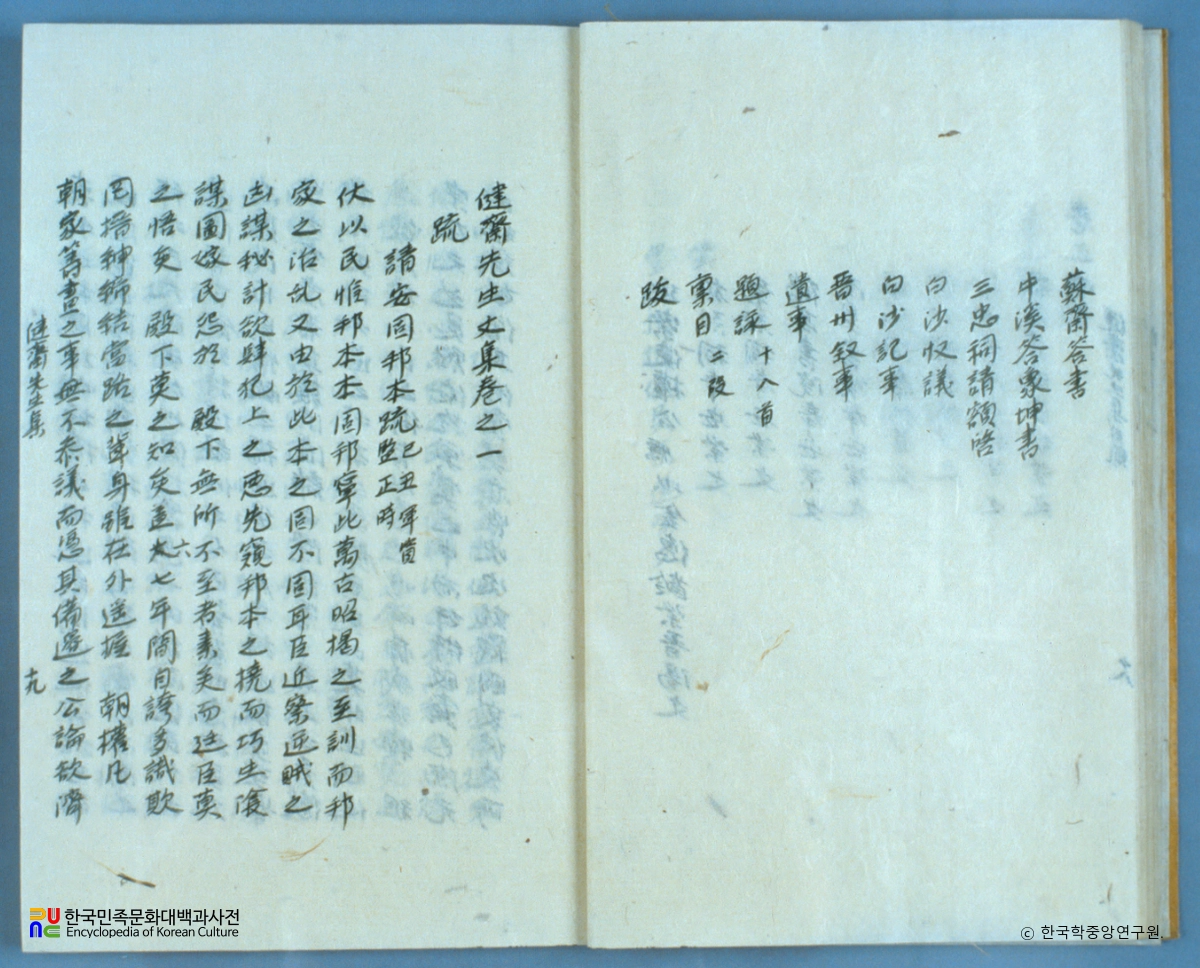 蘇齋答書
中溪答象坤書
三忠祠請額啓
白沙収議
白沙記事
晋州叙事
遺事
題詠 十八首
稟目 二段
跋
健齋先生文集卷之一
疏
請安固邦本疏 己丑軍資監正時
伏以民惟邦本本固邦寧此萬古昭揭之至訓而邦
家之治乱又由於此本之固不固耳臣近察逆賊之
凶謀秘計欲肆犯上之惡先窺邦本之撓而巧生復
謀圖嫁民怨於 殿下無所不至者素矣而廷臣莫
之悟矣 殿下莫之知矣逢六七年間自誇多識欺
罔搢紳締結當路之輩身雖在外遥握 朝權凡
朝家籌畫之事無不參議而憑其備邊之公論欲濟
健齋先生集
十九
한국민족문화대백과사전
Encyclopedia of Korean Culture
ⓒ 한국학중앙연구원.